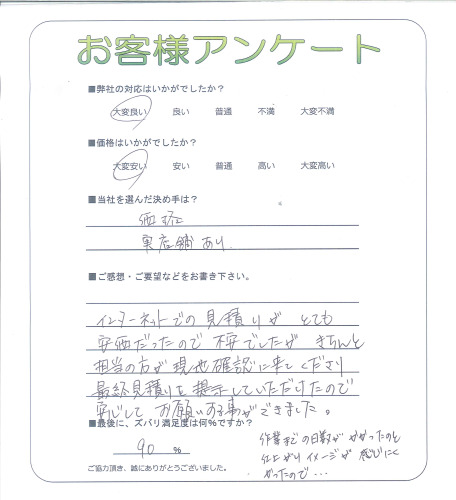 お客様アンケート
■弊社の対応はいかがでしたか？
大変良い 良い 普通 不満 大変不満
■価格はいかがでしたか？
大変安い 安い 普通 高い 大変高い
■当社を選んだ決め手は？
価格
実店舗あり。
■ご感想・ご要望などをお書き下さい。
インターネットでの見積りが とても
安価だったので 不安でしたが きちんと
担当の方が現地確認に来てくださり
最終見積りを提示していただけたので
安心して お願いする事ができました。
■最後に、ズバリ満足度は何%ですか？
90 %
作業までの日数が かかったのと
仕上がりイメージが 感じにく
かったので…
ご協力頂き、誠にありがとうございました。